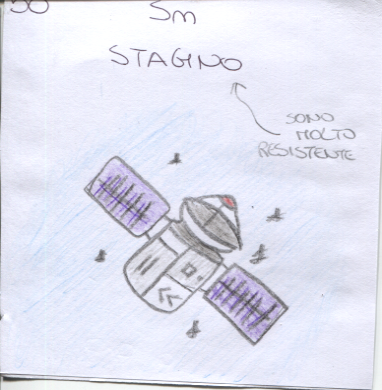 50
Sm
STAGNO
SONO
MOLTO
RESISTENTE